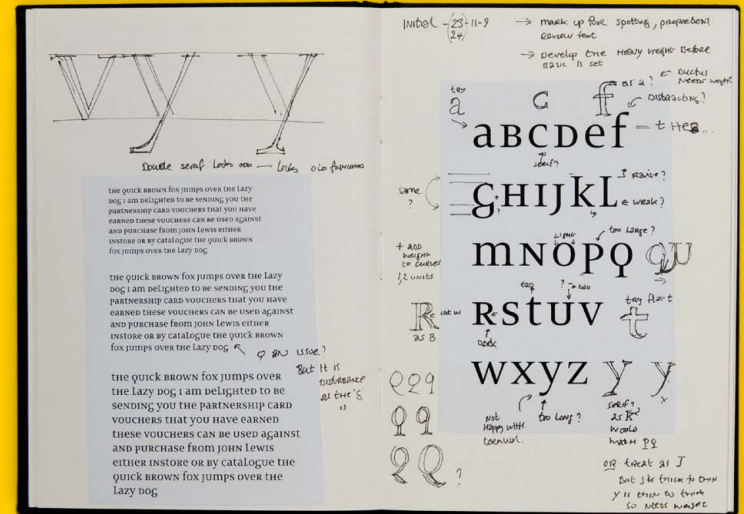 Double serif looks odd — looks old fashioned
the quick brown fox jumps over the lazy
dog i am delighted to be sending you the
partnership card vouchers that you have
earned these vouchers can be used against
and purchase from john lewis either
instore or by catalogue the quick brown
fox jumps over the lazy dog
the quick brown fox jumps over the lazy
dog i am delighted to be sending you the
partnership card vouchers that you have
earned these vouchers can be used against
and purchase from john lewis either
instore or by catalogue the quick brown
fox jumps over the lazy dog
Q an issue?
But it is
disturbance
as the 'g'
is
the quick brown fox jumps over
the lazy dog i am delighted to be
sending you the partnership card
vouchers that you have earned
these vouchers can be used against
and purchase from john lewis
either instore or by catalogue the
quick brown fox jumps over the
lazy dog
Initial - (23-11-9
24)
→ mark up for spotting, proportions
Review font
→ Develop the heavy weight before
basic is set
try
a
c
f
as a?
Ductus
needs weight
Distracting?
aBcDef
t Hes...
serif?
same
?
Raise?
gHIJkL
weak?
+ add
weight
to curves
1,2 units
too large?
mnopQ
QU
R
as B
cut w
try
? too
RstuV
try flat
t
Dark
QQq
QQ
QQ
?
wxyz
y y
x
Not
happy with
too long?
serif?
as R
would
match PQ
OR treat as J
But J is thick to thin
y is thin to thick
so needs